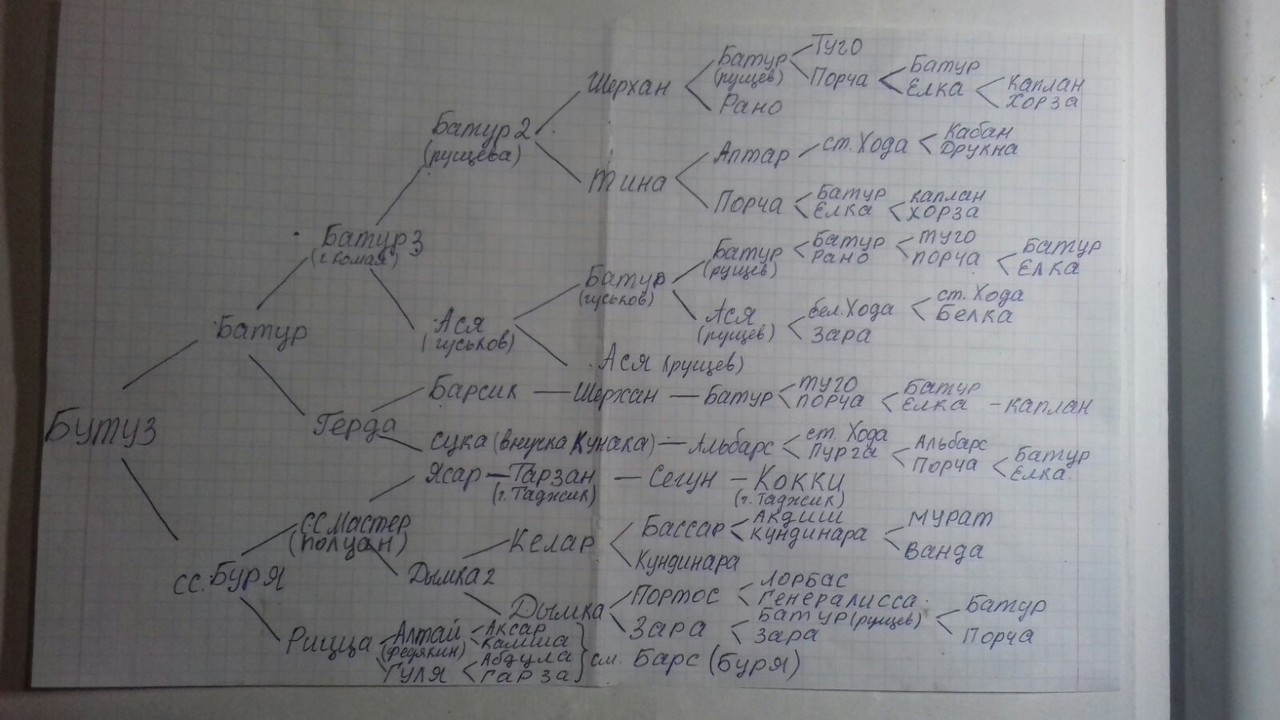 Туго
Батур
(рущев)
Порча
Батур
Елка
Каплан
Хорза
Шерхан
Рано
Батур 2
(рущева)
Алтар
ст. Хода
Кабан
Друкна
Тина
Порча
Батур
Елка
каплан
хорза
Батур 3
Батур
(рущев)
Батур
Рано
Туго
порча
Батур
Елка
Батур
(гуськов)
Ася
(рущев)
бел. Хода
Зара
ст. Хода
Белка
Батур
Ася
(гуськов)
Ася (рущев)
Барсик
Шерхан
Батур
Туго
порча
Батур
Елка
каплан
Бутуз
Герда
сука (внучка Кунака)
Альбарс
ст. Хода
Пурга
Альбарс
Порча
Батур
Елка
Ясар
Тарзан
(г. Таджик)
Сегун
Кокки
(г. Таджик)
сс Мастер
(Полцан)
Келар
Бассар
Акдиш
кундинара
Мурат
Ванда
Кундинара
сс. Буря
Дымка 2
Дымка
Портос
Лорбас
Генералисса
Зара
Батур (рущев)
Зара
Батур
Порча
Рицца
Алтай
(Федякин)
Аксар
Камша
Гуля
Абдула
Гарза
см. Барс (Буря)